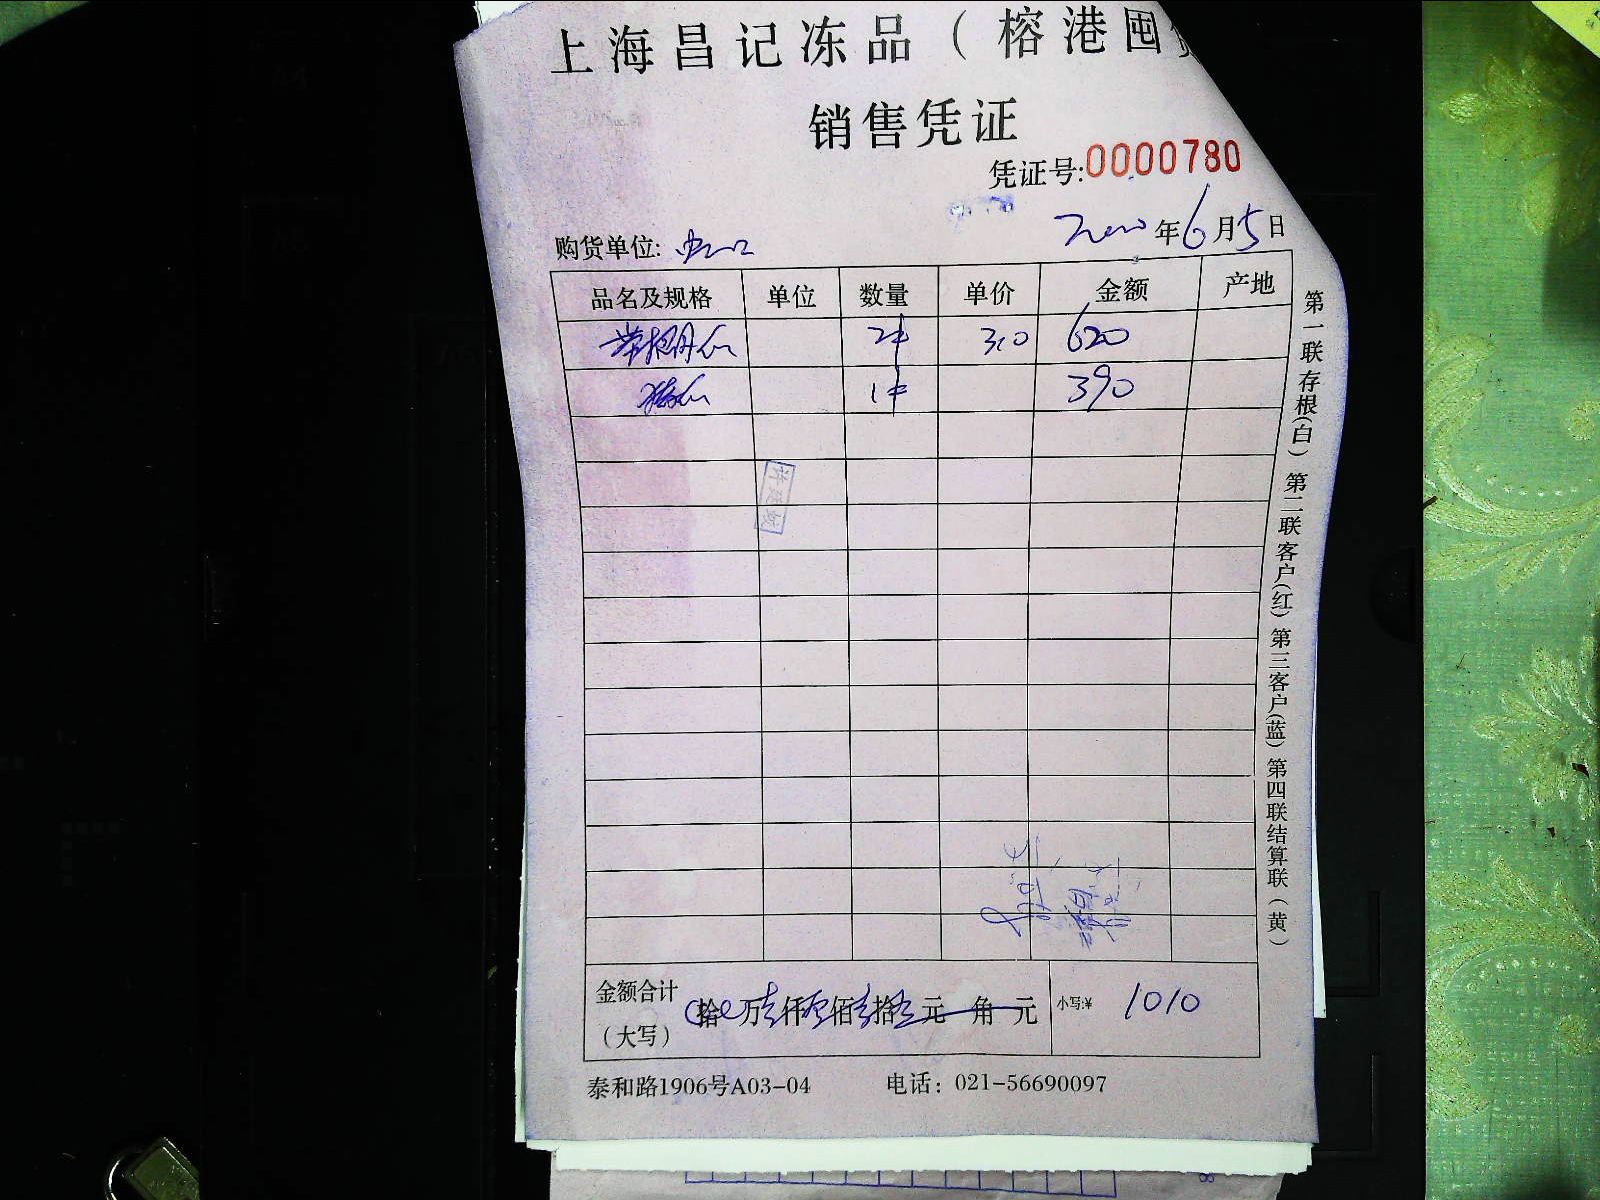 上海昌记冻品（榕港囤货
销售凭证
凭证号:0000780
年6月5日
购货单位:
品名及规格 单位 数量 单价 金额 产地
2件 310 620
1件 390
金额合计（大写） 拾 万 仟 佰 拾 元 角 元 小写:¥ 1010
泰和路1906号A03-04 电话：021-56690097
第一联存根(白) 第二联客户(红) 第三客户(蓝) 第四联结算联(黄)